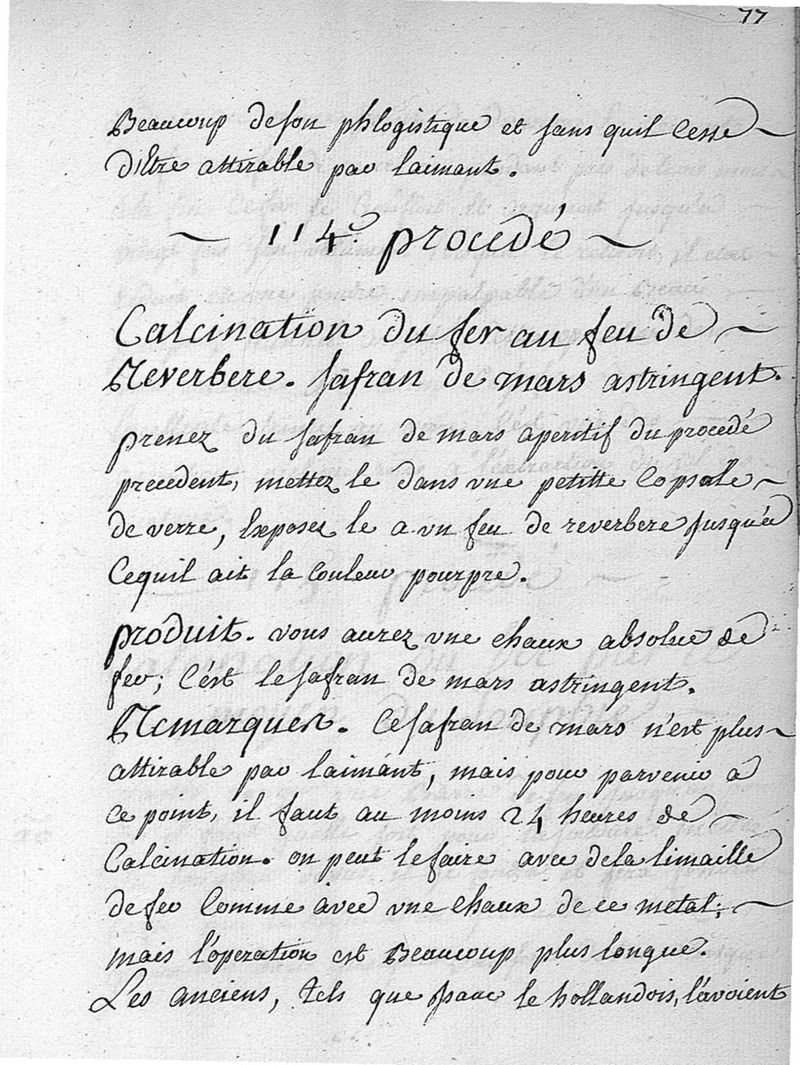 77
Beaucoup de son phlogistique et sans quil Cesse
d'Etre attirable par laimant.
114.e procedé
Calcination du fer au feu de
Reverbere. safran de mars astringent.
prenez du safran de mars aperitif du procedé
precedent, mettez le dans une petitte Capsule
de verre, Exposez le a un feu de reverbere jusqu'a
Cequil ait la Couleur pourpre.
produit. vous aurez une chaux absolue de
fer; C'est le safran de mars astringent.
Remarques. Ce safran de mars n'est plus
attirable par laimant, mais pour parvenir à
ce point, il faut au moins 24 heures de
Calcination. on peut le faire avec de la limaille
de fer Comme avec une Chaux de ce metal;
mais l'operation est Beaucoup plus longue.
Les anciens, tels que Isaac le hollandois, l'avoient